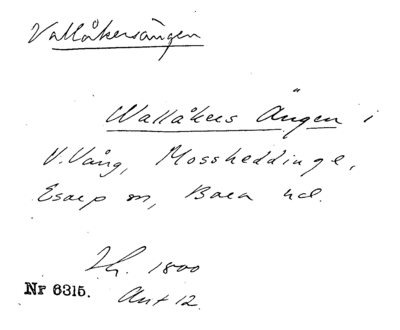 Vallåkersängen
Wallåkers Ängen i
V. Vång, Mossheddinge,
Esarp sn, Bara hd.
Lh. 1800
Nr 6315. Akt 12